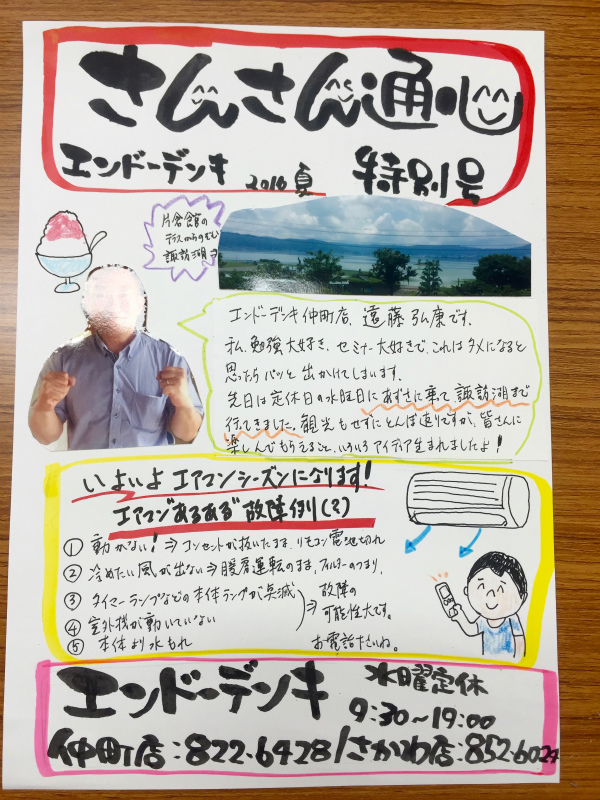 さんさん通心
エンドーデンキ 2016 夏 特別号
片倉館の
テラスからのぞむ
諏訪湖⇒
エンドーデンキ仲町店、遠藤弘康です。
私、勉強大好き、セミナー大好きで、これはタメになると
思ったらパッと出かけてしまいます。
先日は定休日の水曜日にあずさに乗って諏訪湖まで
行てきました。観光もせずにとんぼ返りですが、皆さんに
楽しんでもらえること、いろいろアイディア生まれましたよ!
いよいよエアコンシーズンになります!
エアコン"あるある"故障例(?)
① 動かない!⇒コンセントが抜いたまま、リモコン電池切れ
② 冷めたい風が出ない⇒暖房運転のまま、フィルターのつまり、
③ タイマーランプなどの本体ランプが点滅
④ 室外機が動いていない
⑤ 本体より水もれ
⇒故障の
可能性大です。
お電話ださいね。
エンドーデンキ 水曜定休
9:30~19:00
仲町店:822-6428/さかわ店:852-6024